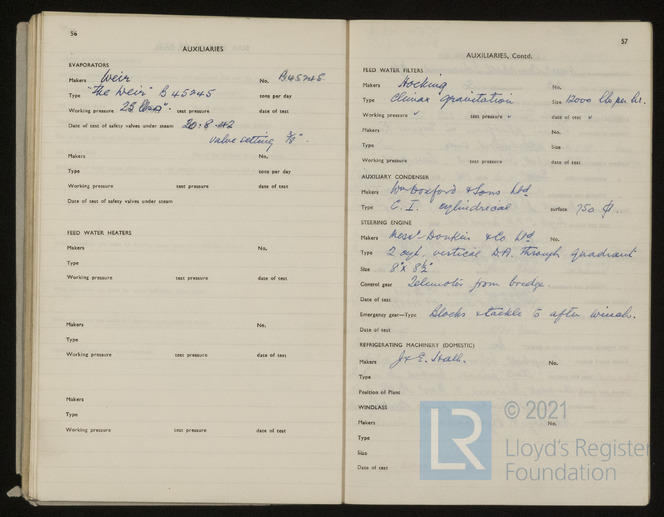 56
AUXILIARIES
EVAPORATORS
Makers Weir No. B45245
Type "The Weir" B 45245 tons per day
Working pressure 25 lbs/□". test pressure date of test
Date of test of safety valves under steam 20.8.42
valve setting ⅜".
Makers No.
Type tons per day
Working pressure test pressure date of test
Date of test of safety valves under steam
FEED WATER HEATERS
Makers No.
Type
Working pressure test pressure date of test
Makers No.
Type
Working pressure test pressure date of test
Makers
Type
Working pressure test pressure date of test
57
AUXILIARIES, Contd.
FEED WATER FILTERS
Makers Hocking No.
Type Climax gravitation Size 12000 lbs per hr.
Working pressure test pressure date of test
Makers No.
Type Size
Working pressure test pressure date of test
AUXILIARY CONDENSER
Makers Wm Doxford & Sons Ltd
Type C.I. cylindrical surface 750
STEERING ENGINE
Makers Messrs Donkin & Co. Ltd No.
Type 2 cyl. vertical D.A. through quadrant
Size 8" x 8½"
Control gear Telemotor from bridge.
Date of test
Emergency gear—Type Blocks & tackle to after winch.
Date of test
REFRIGERATING MACHINERY (DOMESTIC)
Makers J & E. Hall. No.
Type
Position of Plant
WINDLASS
Makers No.
Type
Size
Date of test
LR
© 2021
Lloyd's Register
Foundation